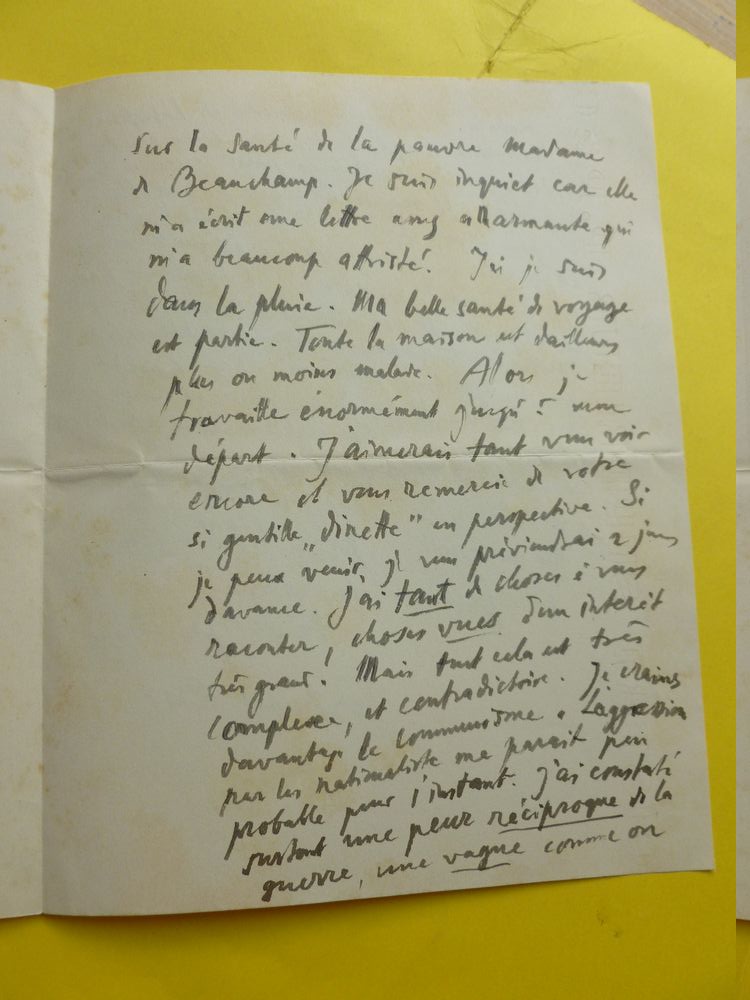 sur la santé de la pauvre Madame
de Beauchamp. Je suis inquiet car elle
m'a écrit une lettre assez allarmante qui
m'a beaucoup attristé. Ici je suis
dans la pluie. Ma belle santé de voyage
est partie. Toute la maison est dailleurs
plus ou moins malade. Alors je
travaille énormément jusqu'à mon
départ. J'aimerais tant vous voir
encore et vous remercie de votre
si gentille "dinette" en perspective. Si
je peux venir, je vous préviendrai 2 jours
davance. J'ai tant de choses à vous
raconter, choses vues d'un intérêt
très grand. Mais tout cela est très
complexe, et contradictoire. Je crains
davantage le communisme. L'aggression
par les nationaliste me parait peu
probable pour l'instant. J'ai constaté
surtout une peur réciproque de la
guerre, une vague comme on